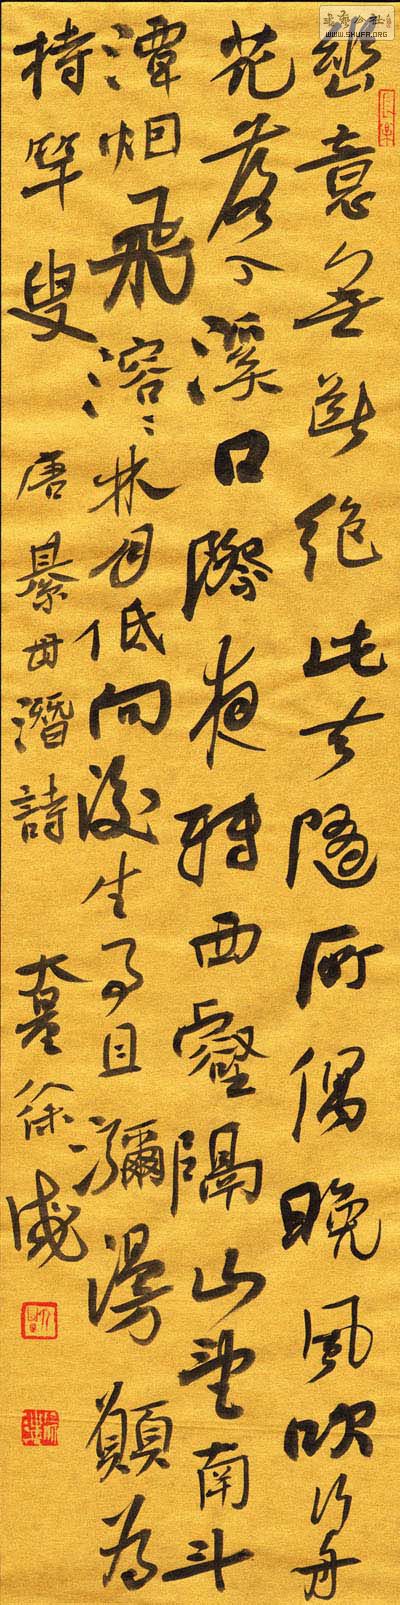 幽意無斷絕此去隨所偶晚風吹行舟
花落入溪口際夜轉西壑隔山望南斗
潭烟飛溶〻林月低向後生事且瀰漫願為
持竿叟
唐綦毋潛詩
徐
WWW.SHUFA.ORG